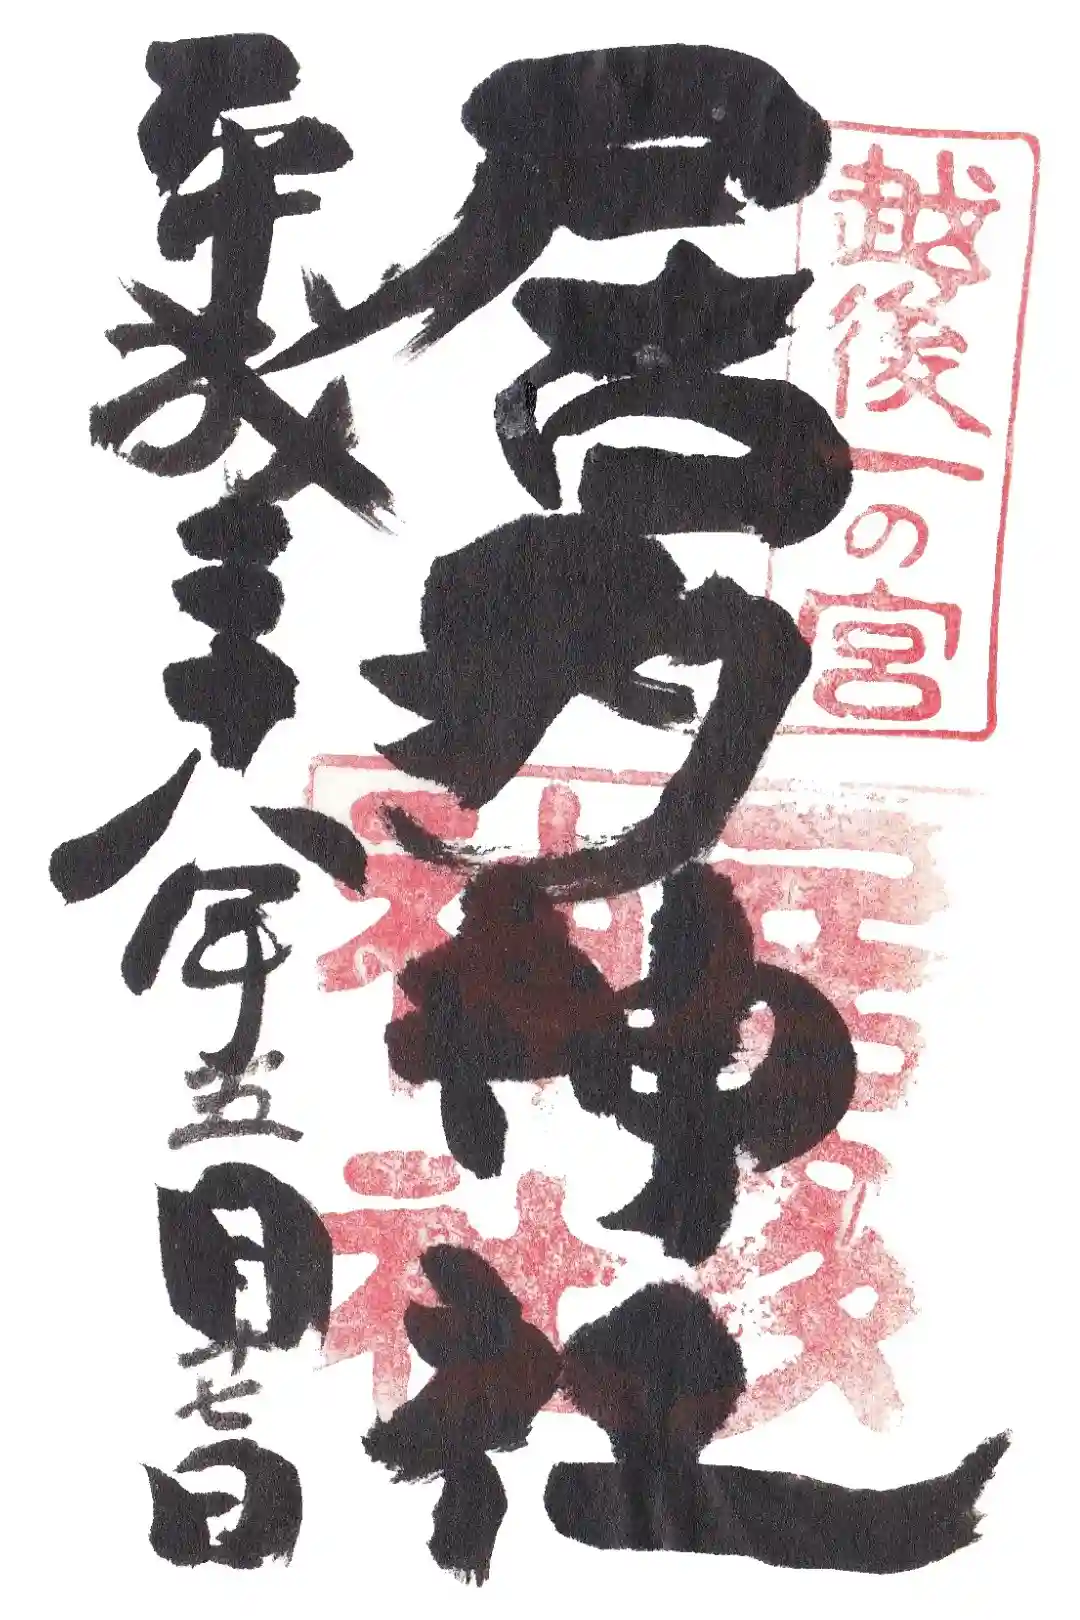 越後一の宮
居多神社
居多
神社
平成二十八年五月十七日